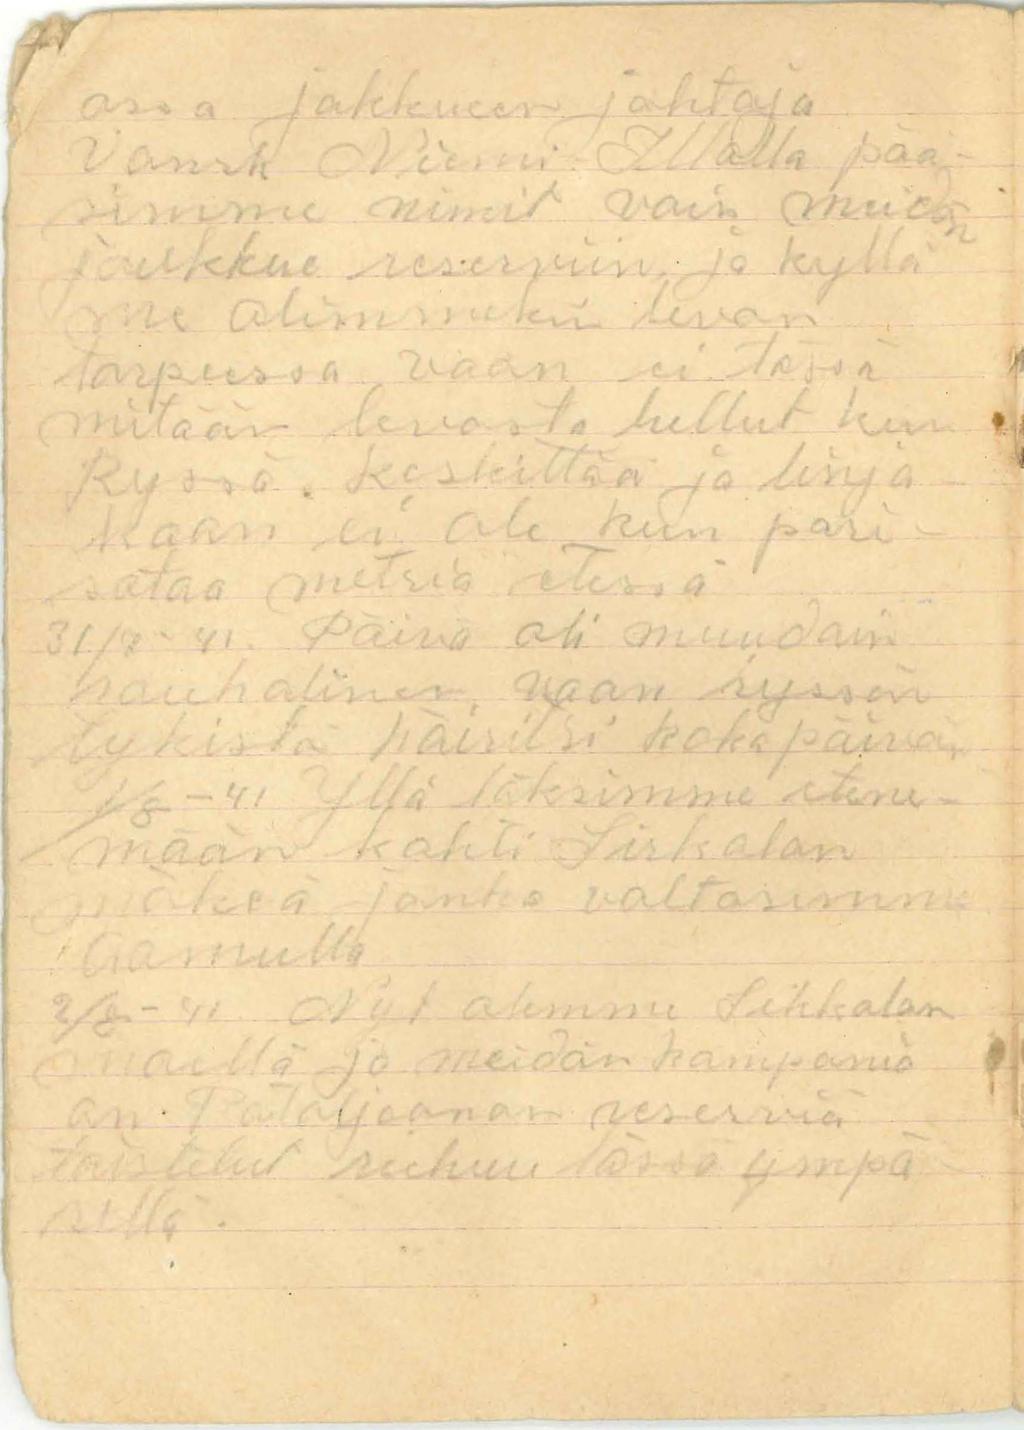 assa jokkueen johtaja
Vänrk Niemi. Illalla pää-
simme nimit vain meidän
joukkue reserviin, ja kyllä
me olimmekin levon
tarpeessa vaan ei tässä
mitään levosta tullut kun
Ryssä. keskittää ja linja
kaan ei ole kun pari-
sataa metriä etessä
31/7-41. Päivä oli muudain
rauhalinen, vaan ryssän
tykistö häiritsi koko päivän
1/8-41 Yllä läksimme etene-
mään kohti Sirkalan
mäkeä jonka valtasimme
aamulla
2/8-41. Nyt olemme Sikkalan
maellä ja meidän komppania
on Pataljoonan reserviä
taistelut riehuu tässä ympä
rillä.